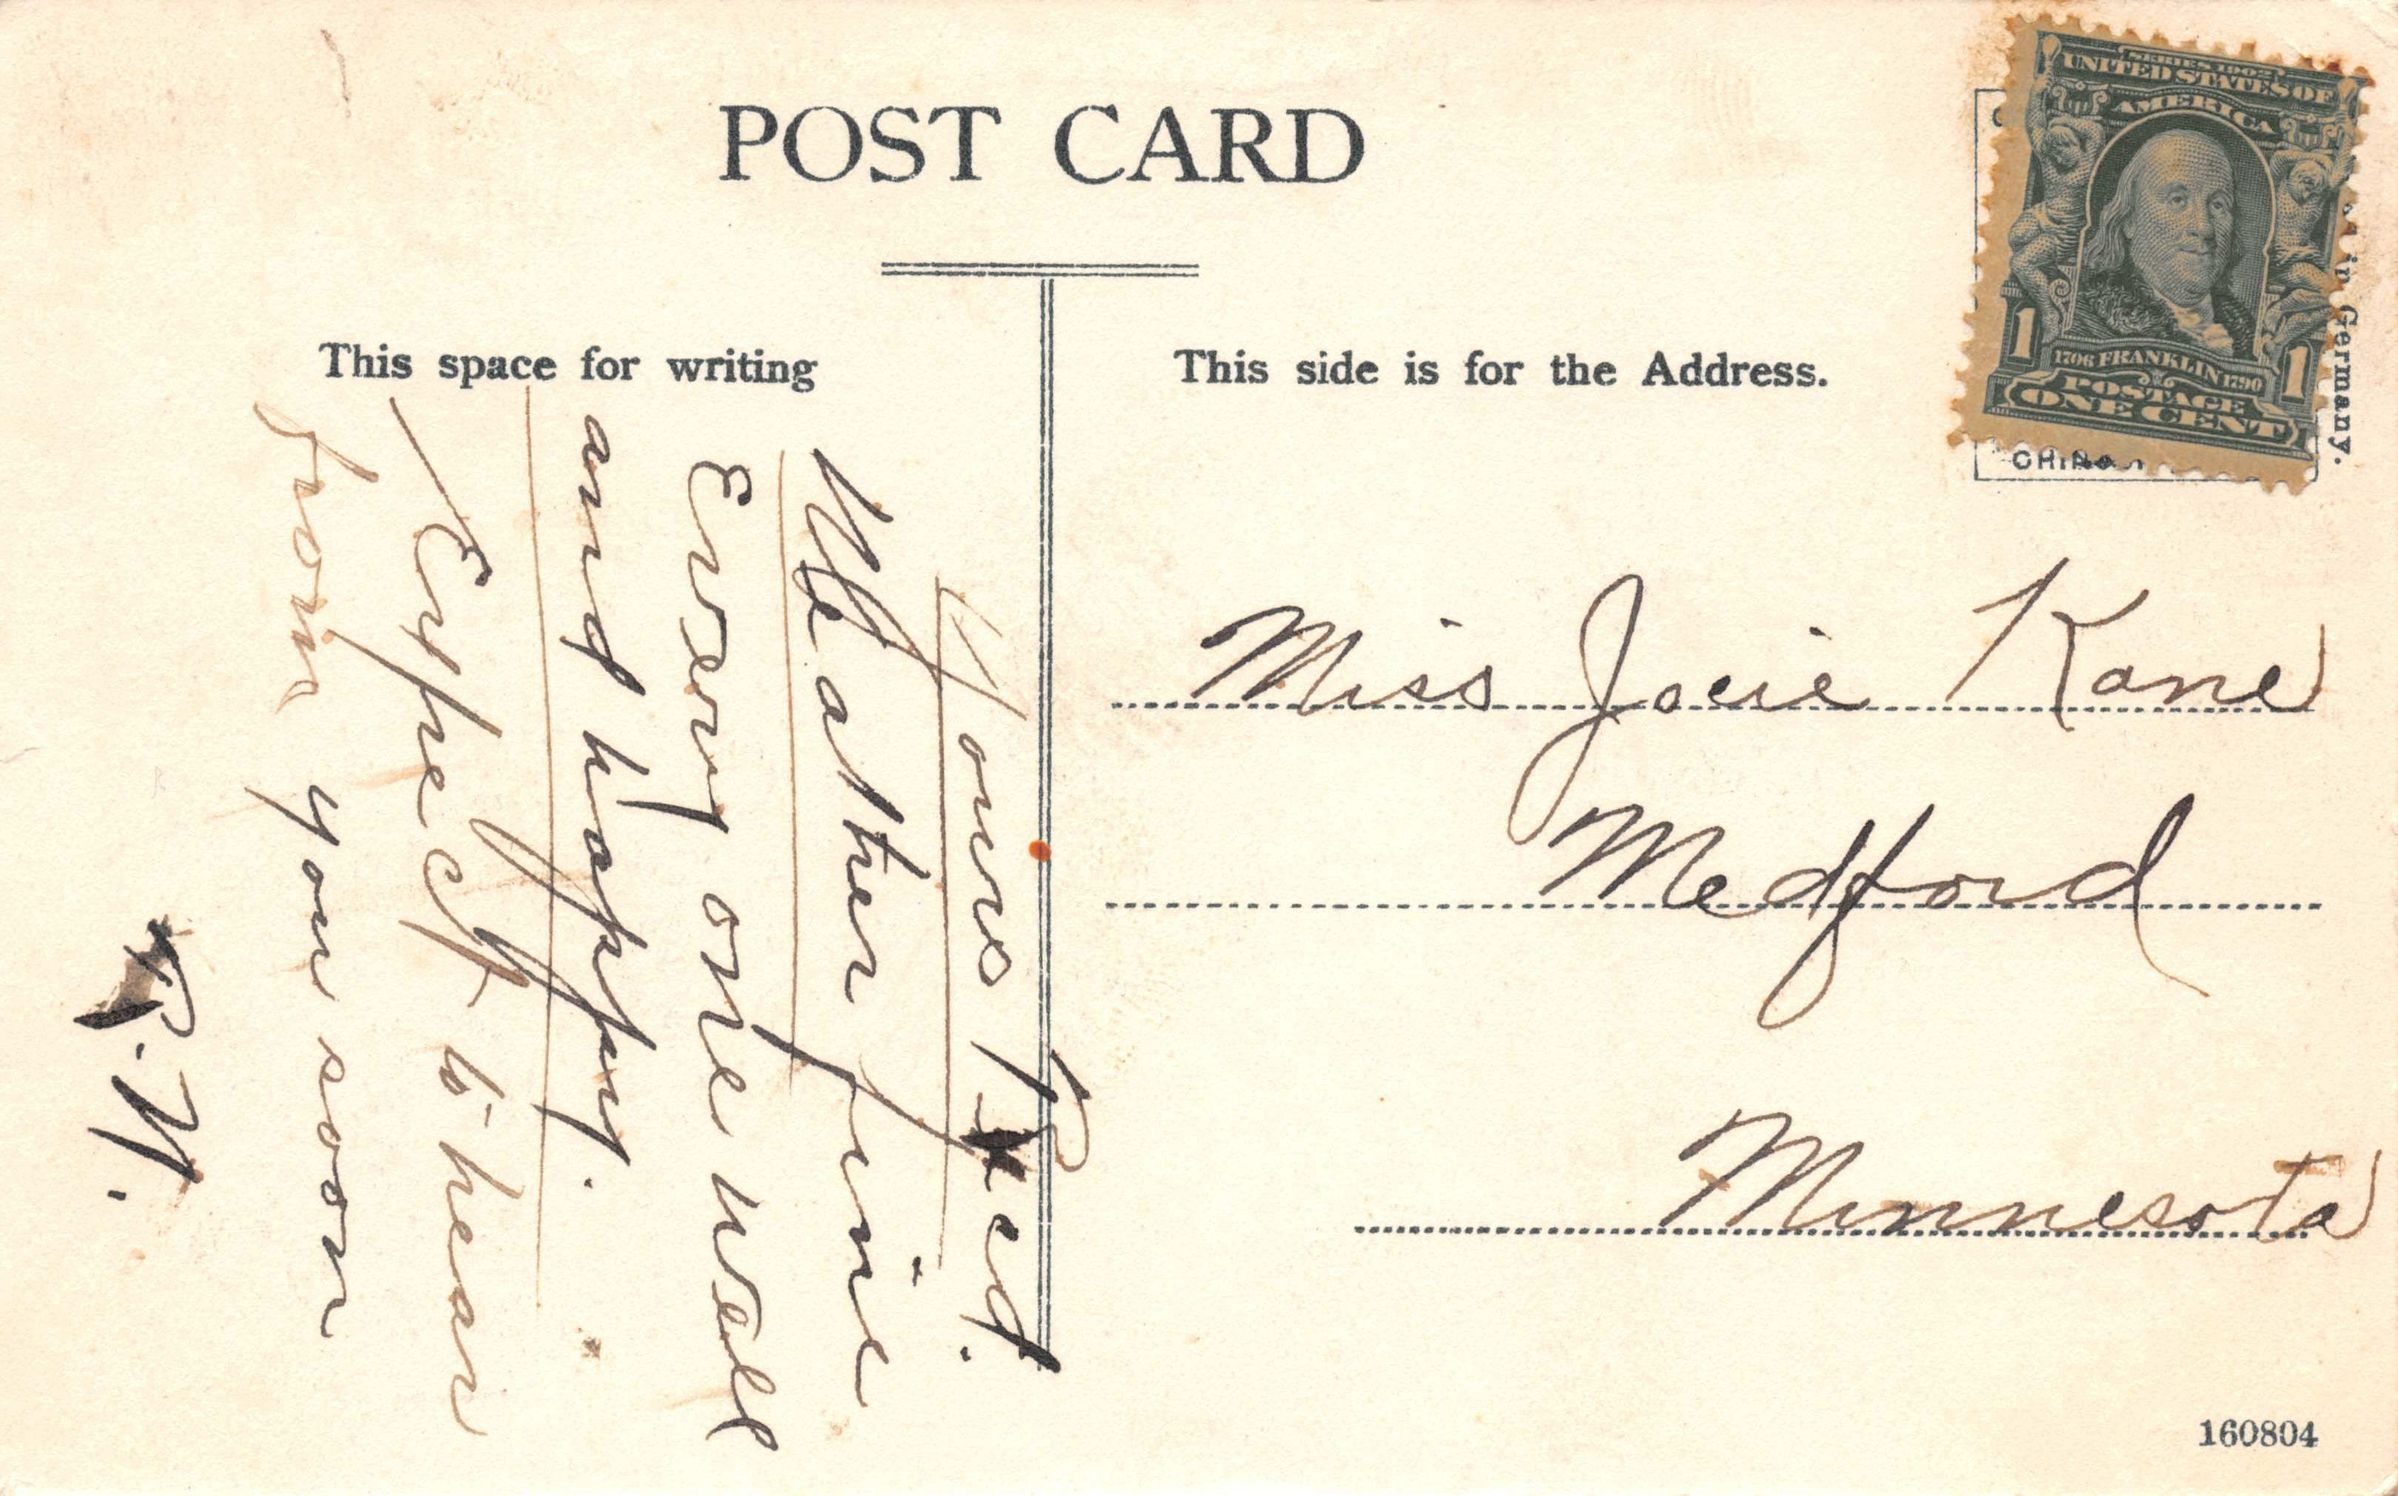 POST CARD
This space for writing
This side is for the Address.
SERIES 1902
UNITED STATES OF
AMERICA
1 1706 FRANKLIN 1790 1
POSTAGE
ONE CENT
in Germany.
CHINA
Yours Recd.
Weather fine
Every one well
and happy.
Expect to hear
from you soon
R. N.
Miss Jocie Kane
Medford
Minnesota
160804